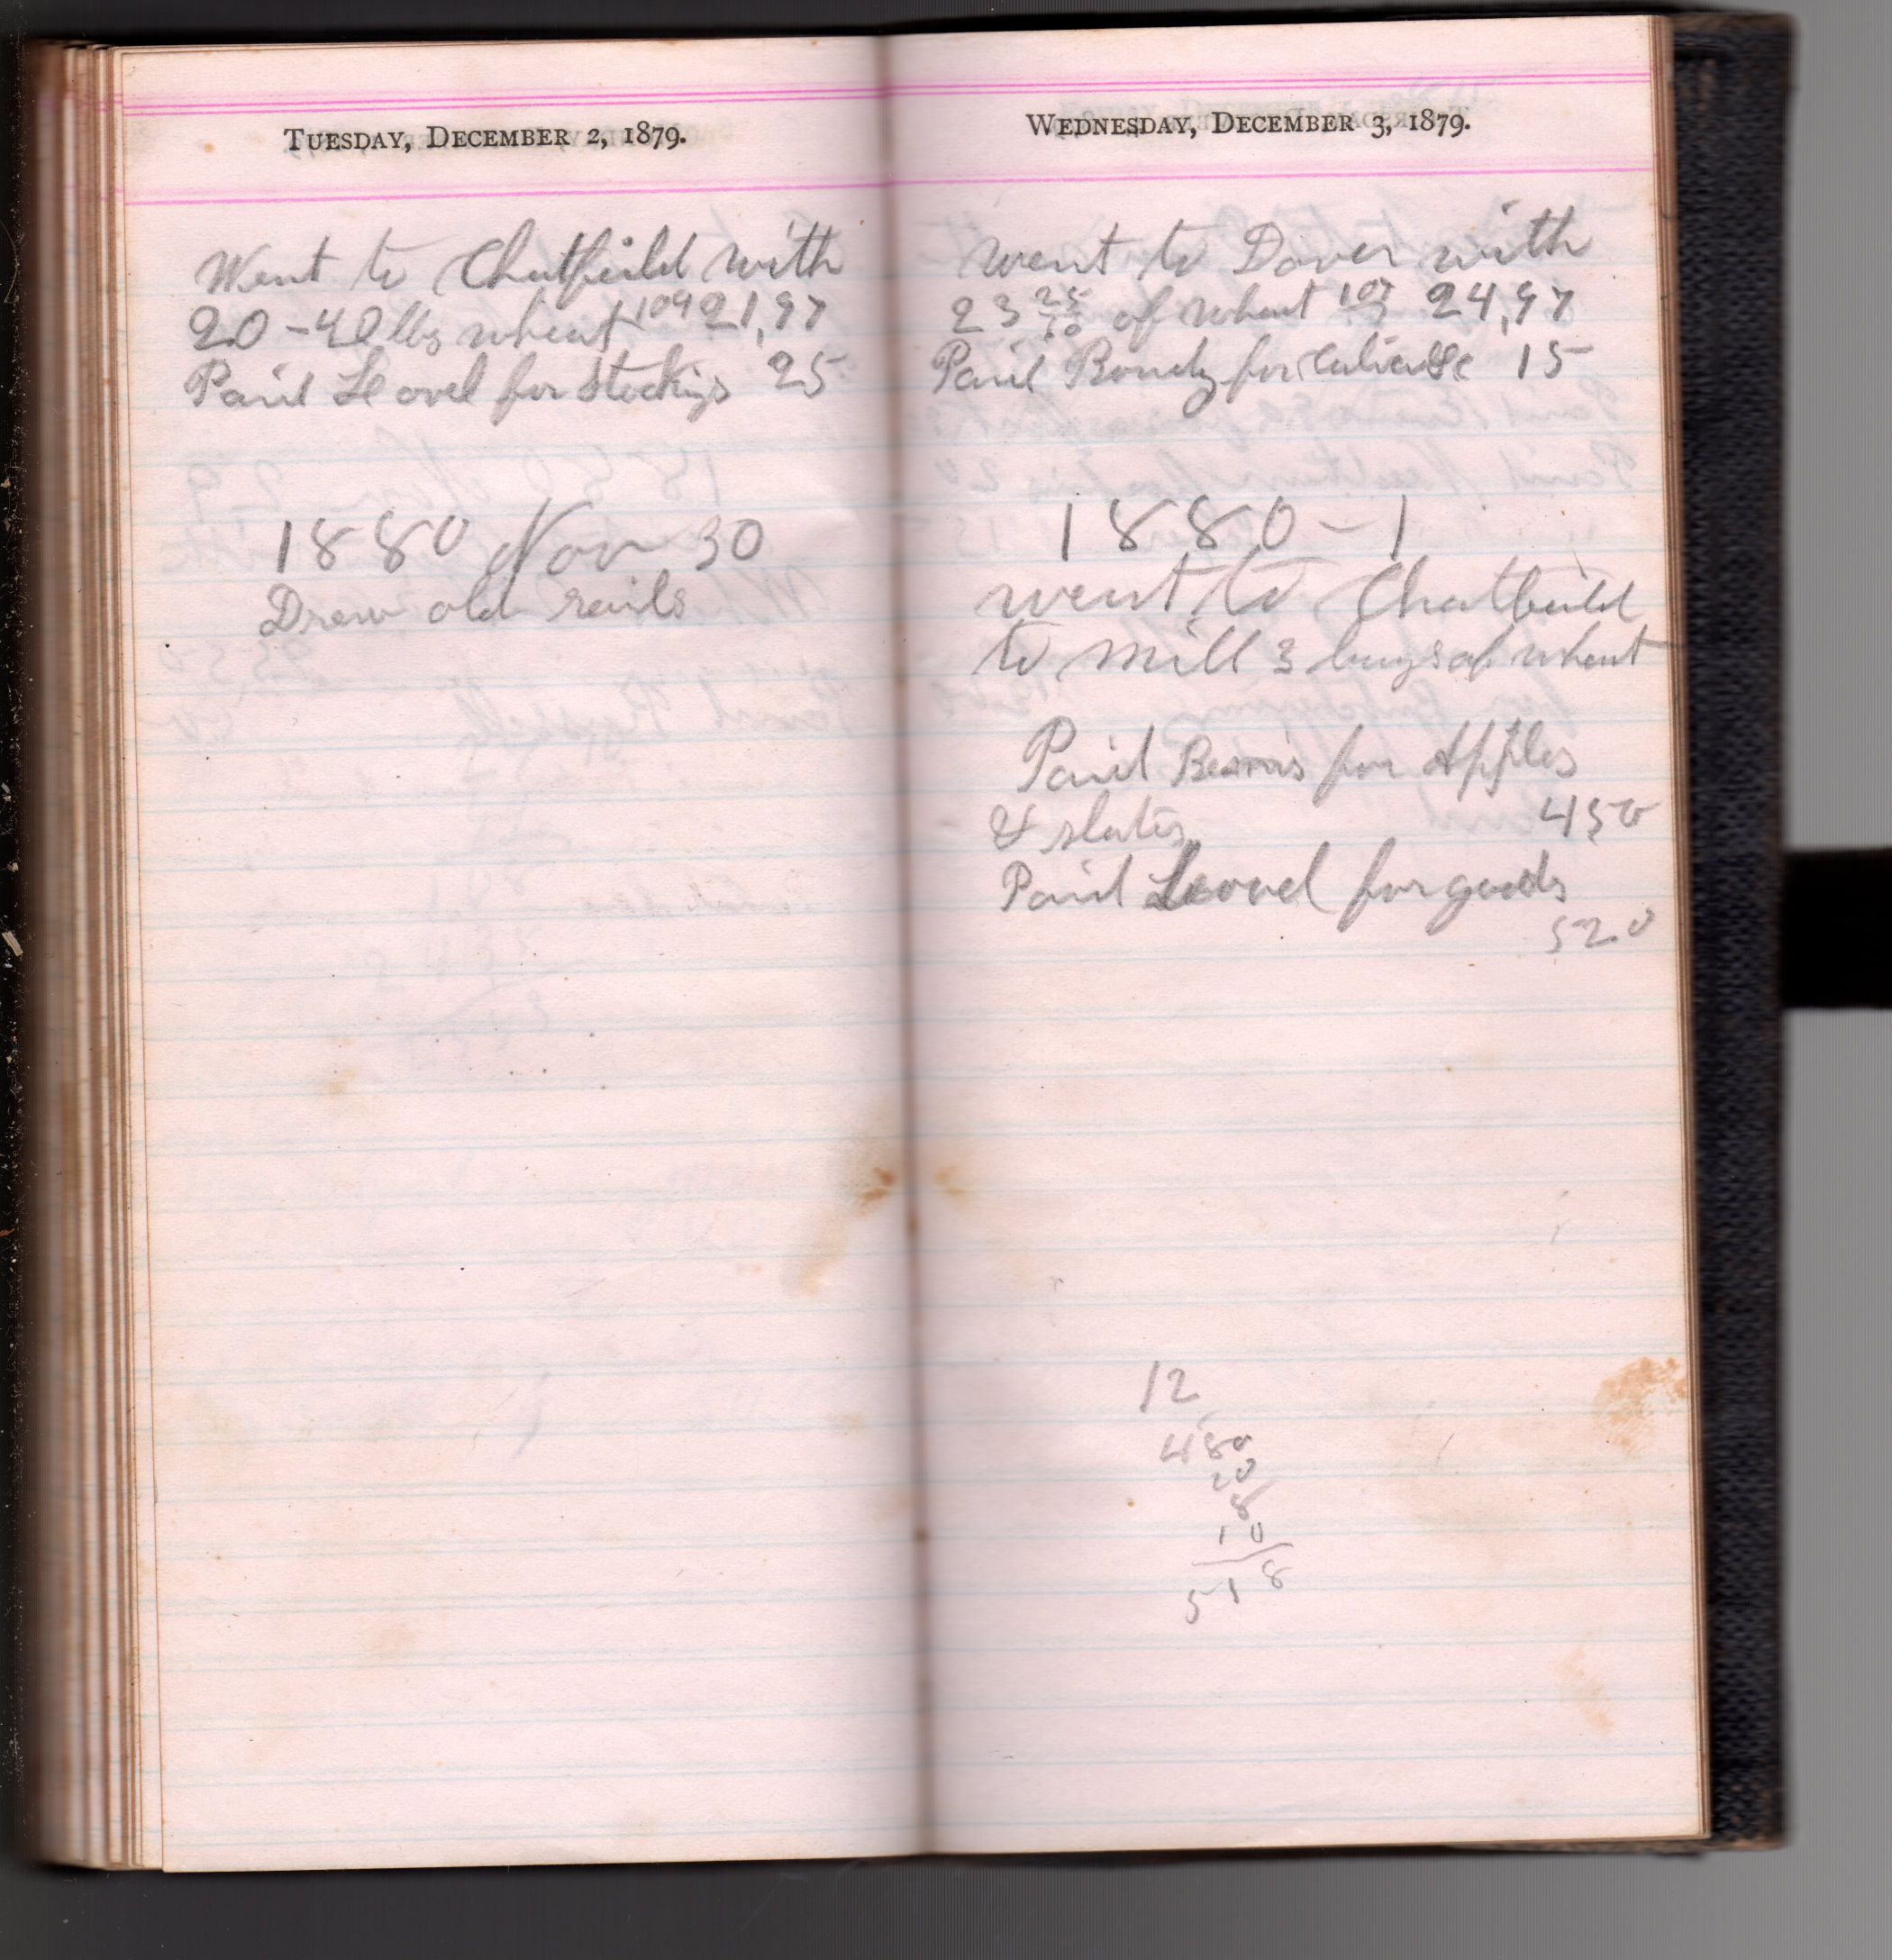 TUESDAY, DECEMBER 2, 1879.
Went to Chatfeild with
20-40 lbs wheat 109 21,97
Paid Leovel for Stockigs 25
1880 Nov 30
Drew old rails
WEDNESDAY, DECEMBER 3, 1879.
went to Dover with
23 25/60 of wheat 107 24,97
Paid for 15
1880-1
went to Chatfeild
to mill 3 bags of wheat
Paid Bemis for Apples
& slates 450
Paid Leovel for goods
520
12
480
20
8
10
518